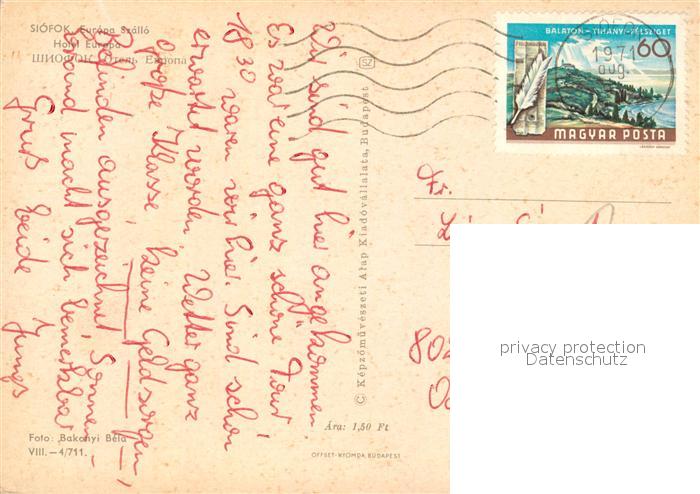 SIÓFOK, Európa Szálló
Hotel Europa
ШИОФОК, Отель Европа
Wir sind gut hier angekommen
Es war eine ganz schöne Tour
18³⁰ waren wir hier. Sind schon
erwartet worden. Wetter ganz
große Klasse, keine Geldsorgen,
Befinden ausgezeichnet, Sonnen-
brand macht sich bemerkbar
Gruß beide Jungs
SZ
© Képzőművészeti Alap Kiadóvállalata, Budapest
BALATON - TIHANYI-FÉLSZIGET
60
1971
aug.
MAGYAR POSTA
Fr.
80
privacy protection
Datenschutz
Foto: Bakonyi Béla
VIII.—4/711.
Ára: 1,50 Ft
OFFSET-NYOMDA, BUDAPEST